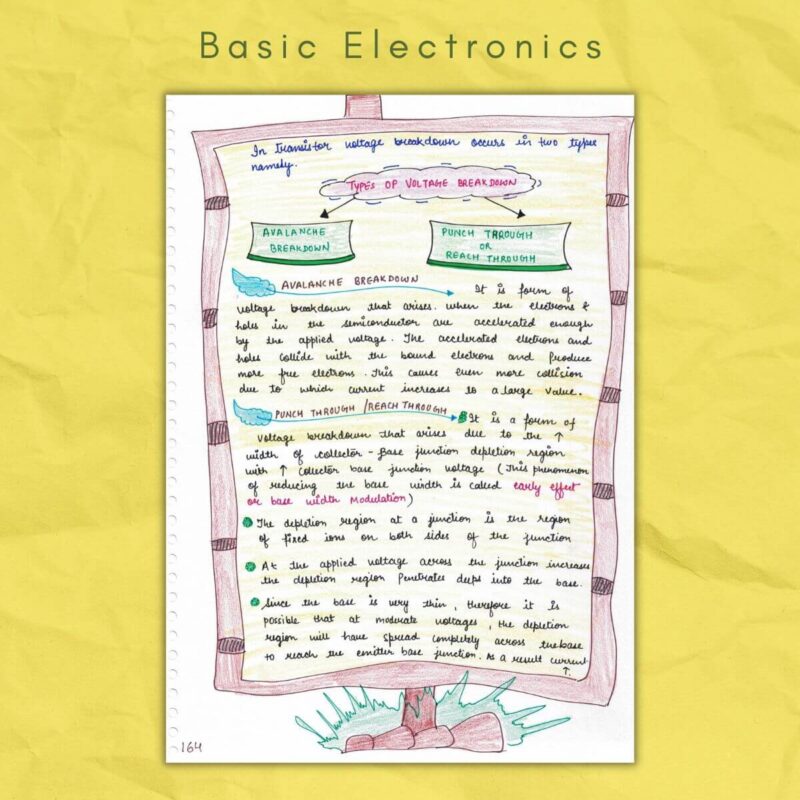 Basic Electronics
In transistor voltage breakdown occurs in two types
namely.
TYPES OF VOLTAGE BREAKDOWN
AVALANCHE
BREAKDOWN
PUNCH THROUGH
OR
REACH THROUGH
AVALANCHE BREAKDOWN
It is form of
voltage breakdown that arises. when the electrons &
holes in the semiconductor are accelerated enough
by the applied voltage. The accelerated electrons and
holes collide with the bound electrons and Produce
more free electrons. This causes even more collision
due to which current increases to a large value.
PUNCH THROUGH /REACH THROUGH
It is a form of
voltage breakdown that arises due to the ↑
width of collector - Base junction depletion region
with ↑ collector base junction voltage (This phenomenon
of reducing the base width is called early effect
or base width modulation)
The depletion region at a junction is the region
of fixed ions on both sides of the junction
At the applied voltage across the junction increases
the depletion region Penetrates deeps into the base.
Since the base is very thin, therefore it is
possible that at moderate voltages, the depletion
region will have spread completely across the base
to reach the emitter base junction. As a result current
↑.
164